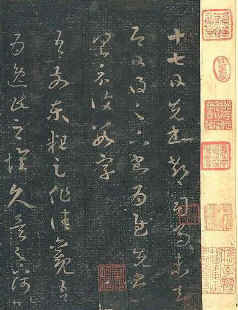 十七日先書郗司馬未去
即日得足下書為慰先書以
具示復數字
吾前東粗足作佳觀吾
為逸民之懷久矣足下何